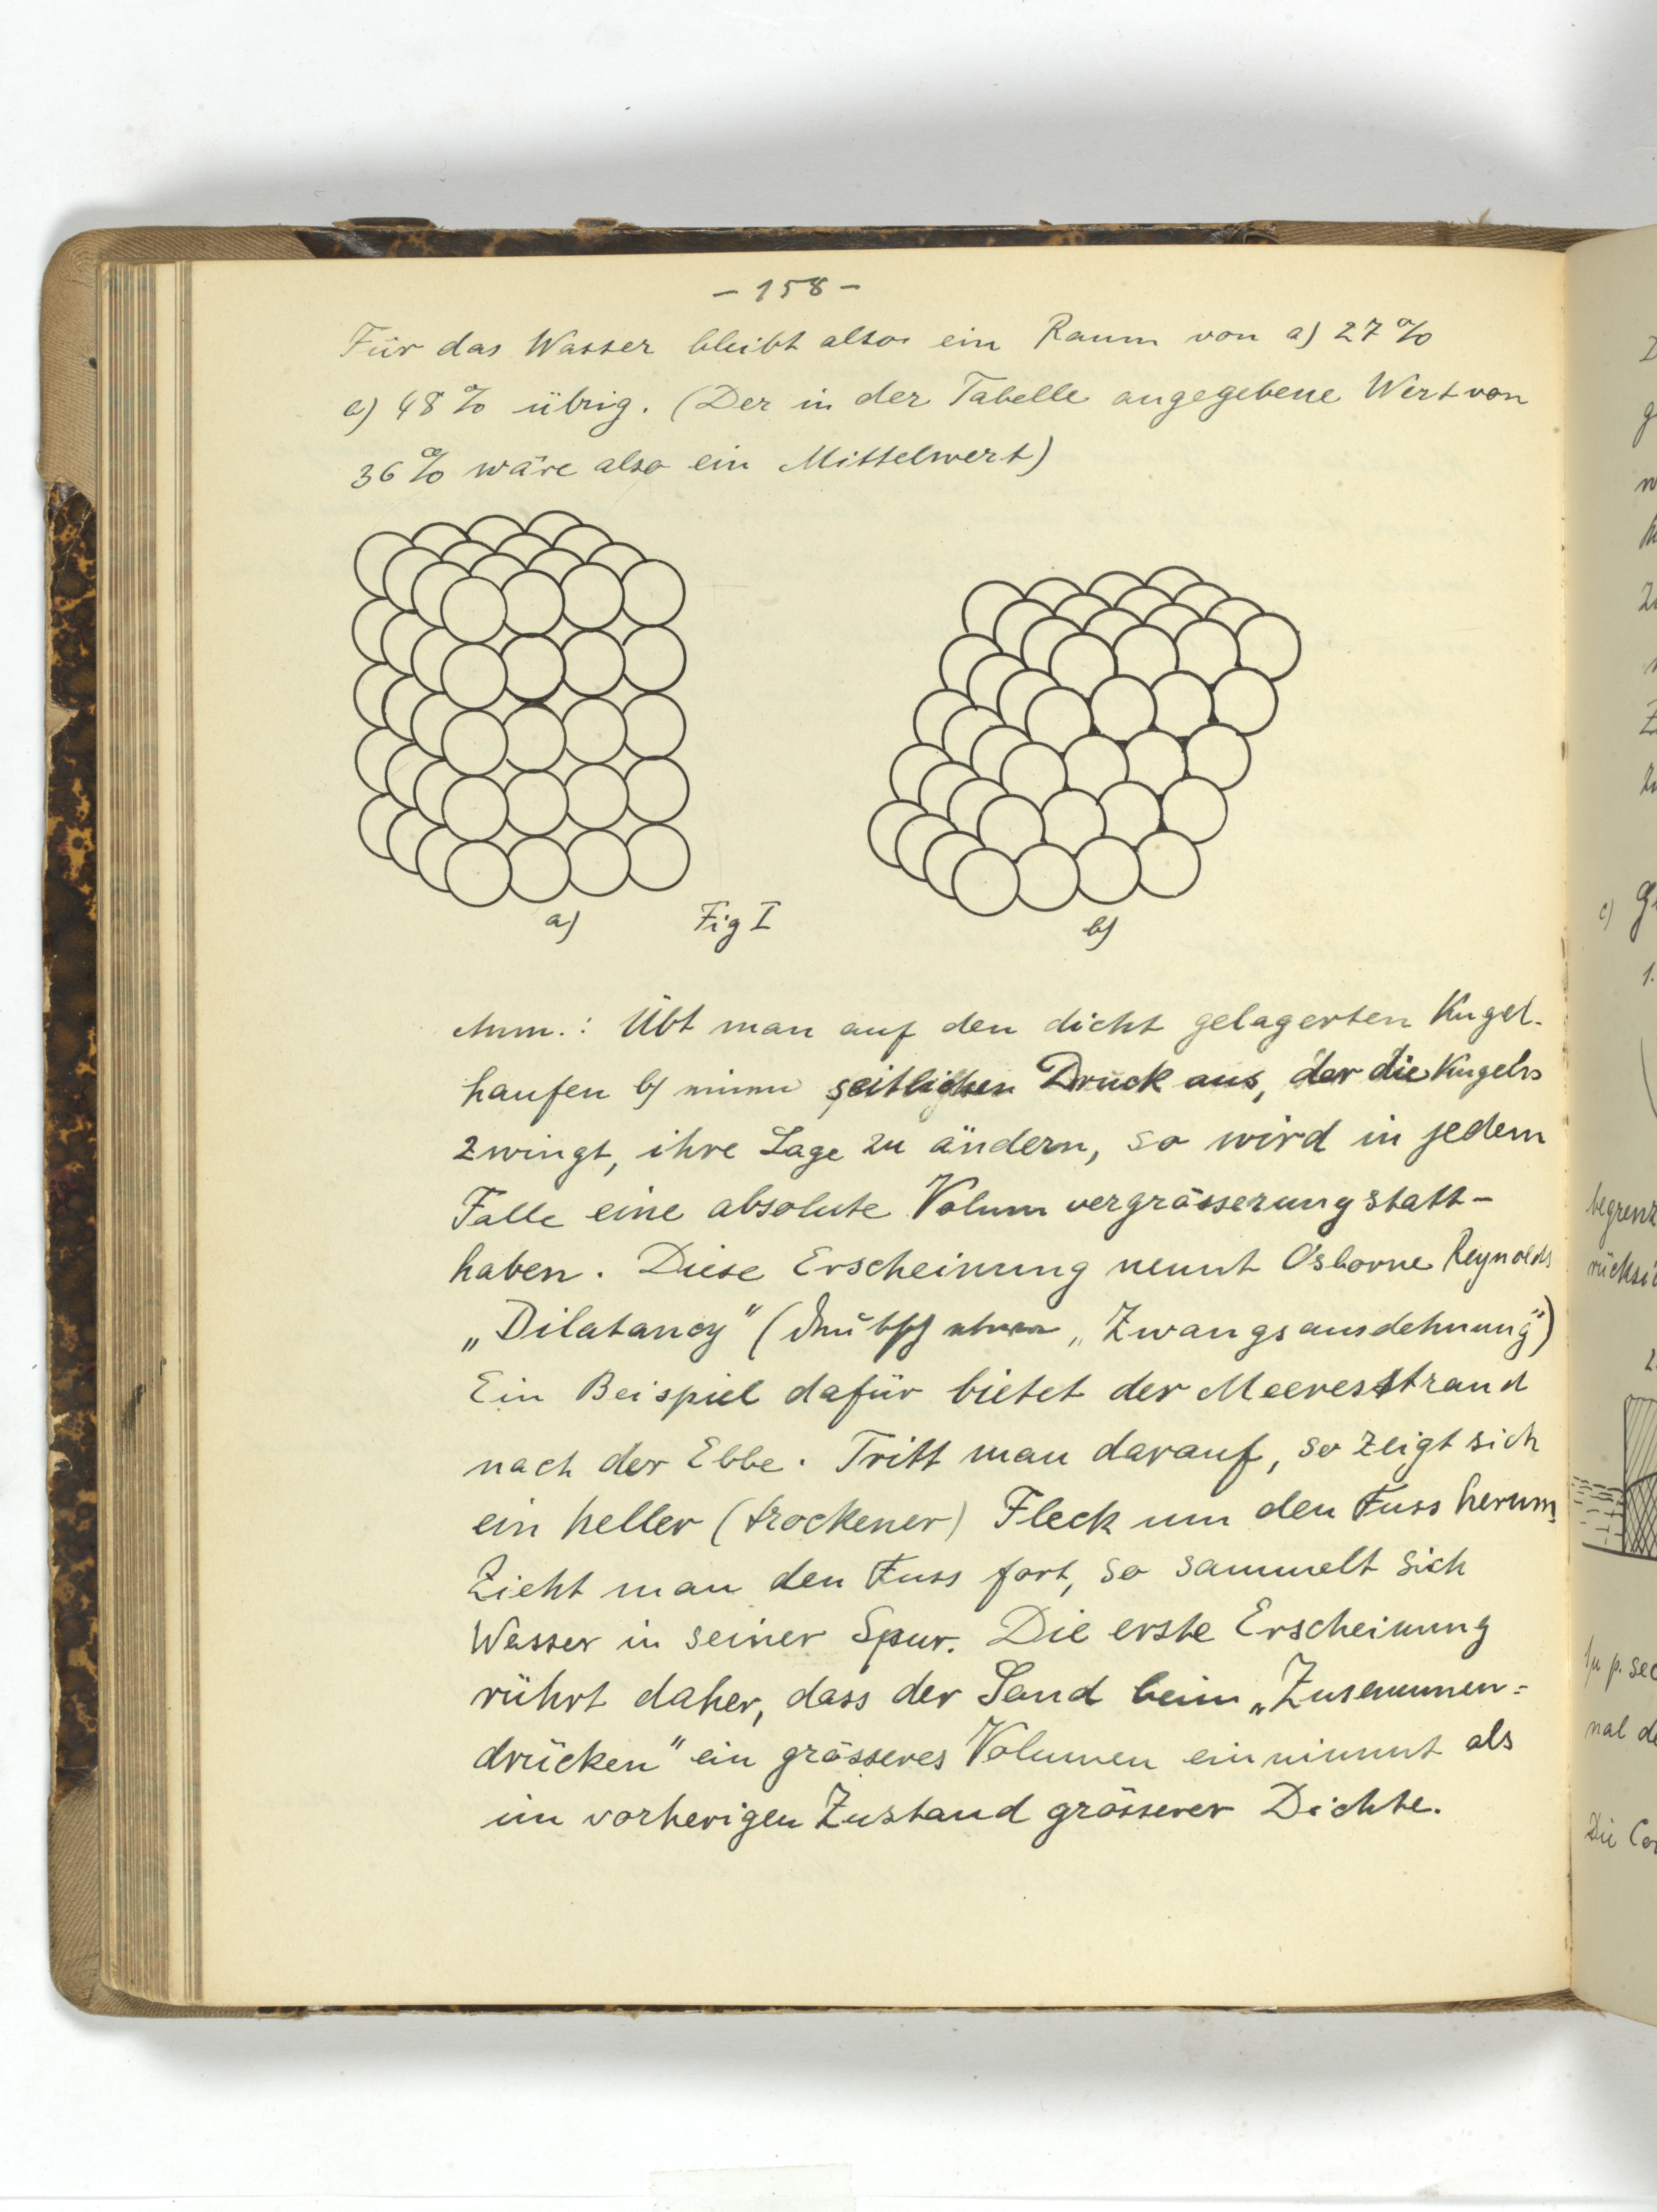 - 158 -
Für das Wasser bleibt also ein Raum von a) 27%
e) 48% übrig. (Der in der Tabelle angegebene Wert von
36% wäre also ein Mittelwert)
a) Fig I b)
Anm.: Übt man auf den dicht gelagerten Kugel-
haufen b) seitlichen Druck aus, der die Kugeln
zwingt, ihre Lage zu ändern, so wird in jedem
Falle eine absolute Volumvergrösserung statt-
haben. Diese Erscheinung nennt Osborne Reynolds
„Dilatancy" ( „Zwangsausdehnung")
Ein Beispiel dafür bietet der Meeresstrand
nach der Ebbe. Tritt man darauf, so zeigt sich
ein heller (trockener) Fleck um den Fuss herum.
Zieht man den Fuss fort, so sammelt sich
Wasser in seiner Spur. Die erste Erscheinung
rührt daher, dass der Sand beim „Zusammen=
drücken" ein grösseres Volumen einnimmt als
im vorherigen Zustand grösserer Dichte.
c)
1.
begrenz
rücksi
2.
p. sec
nal de
Die